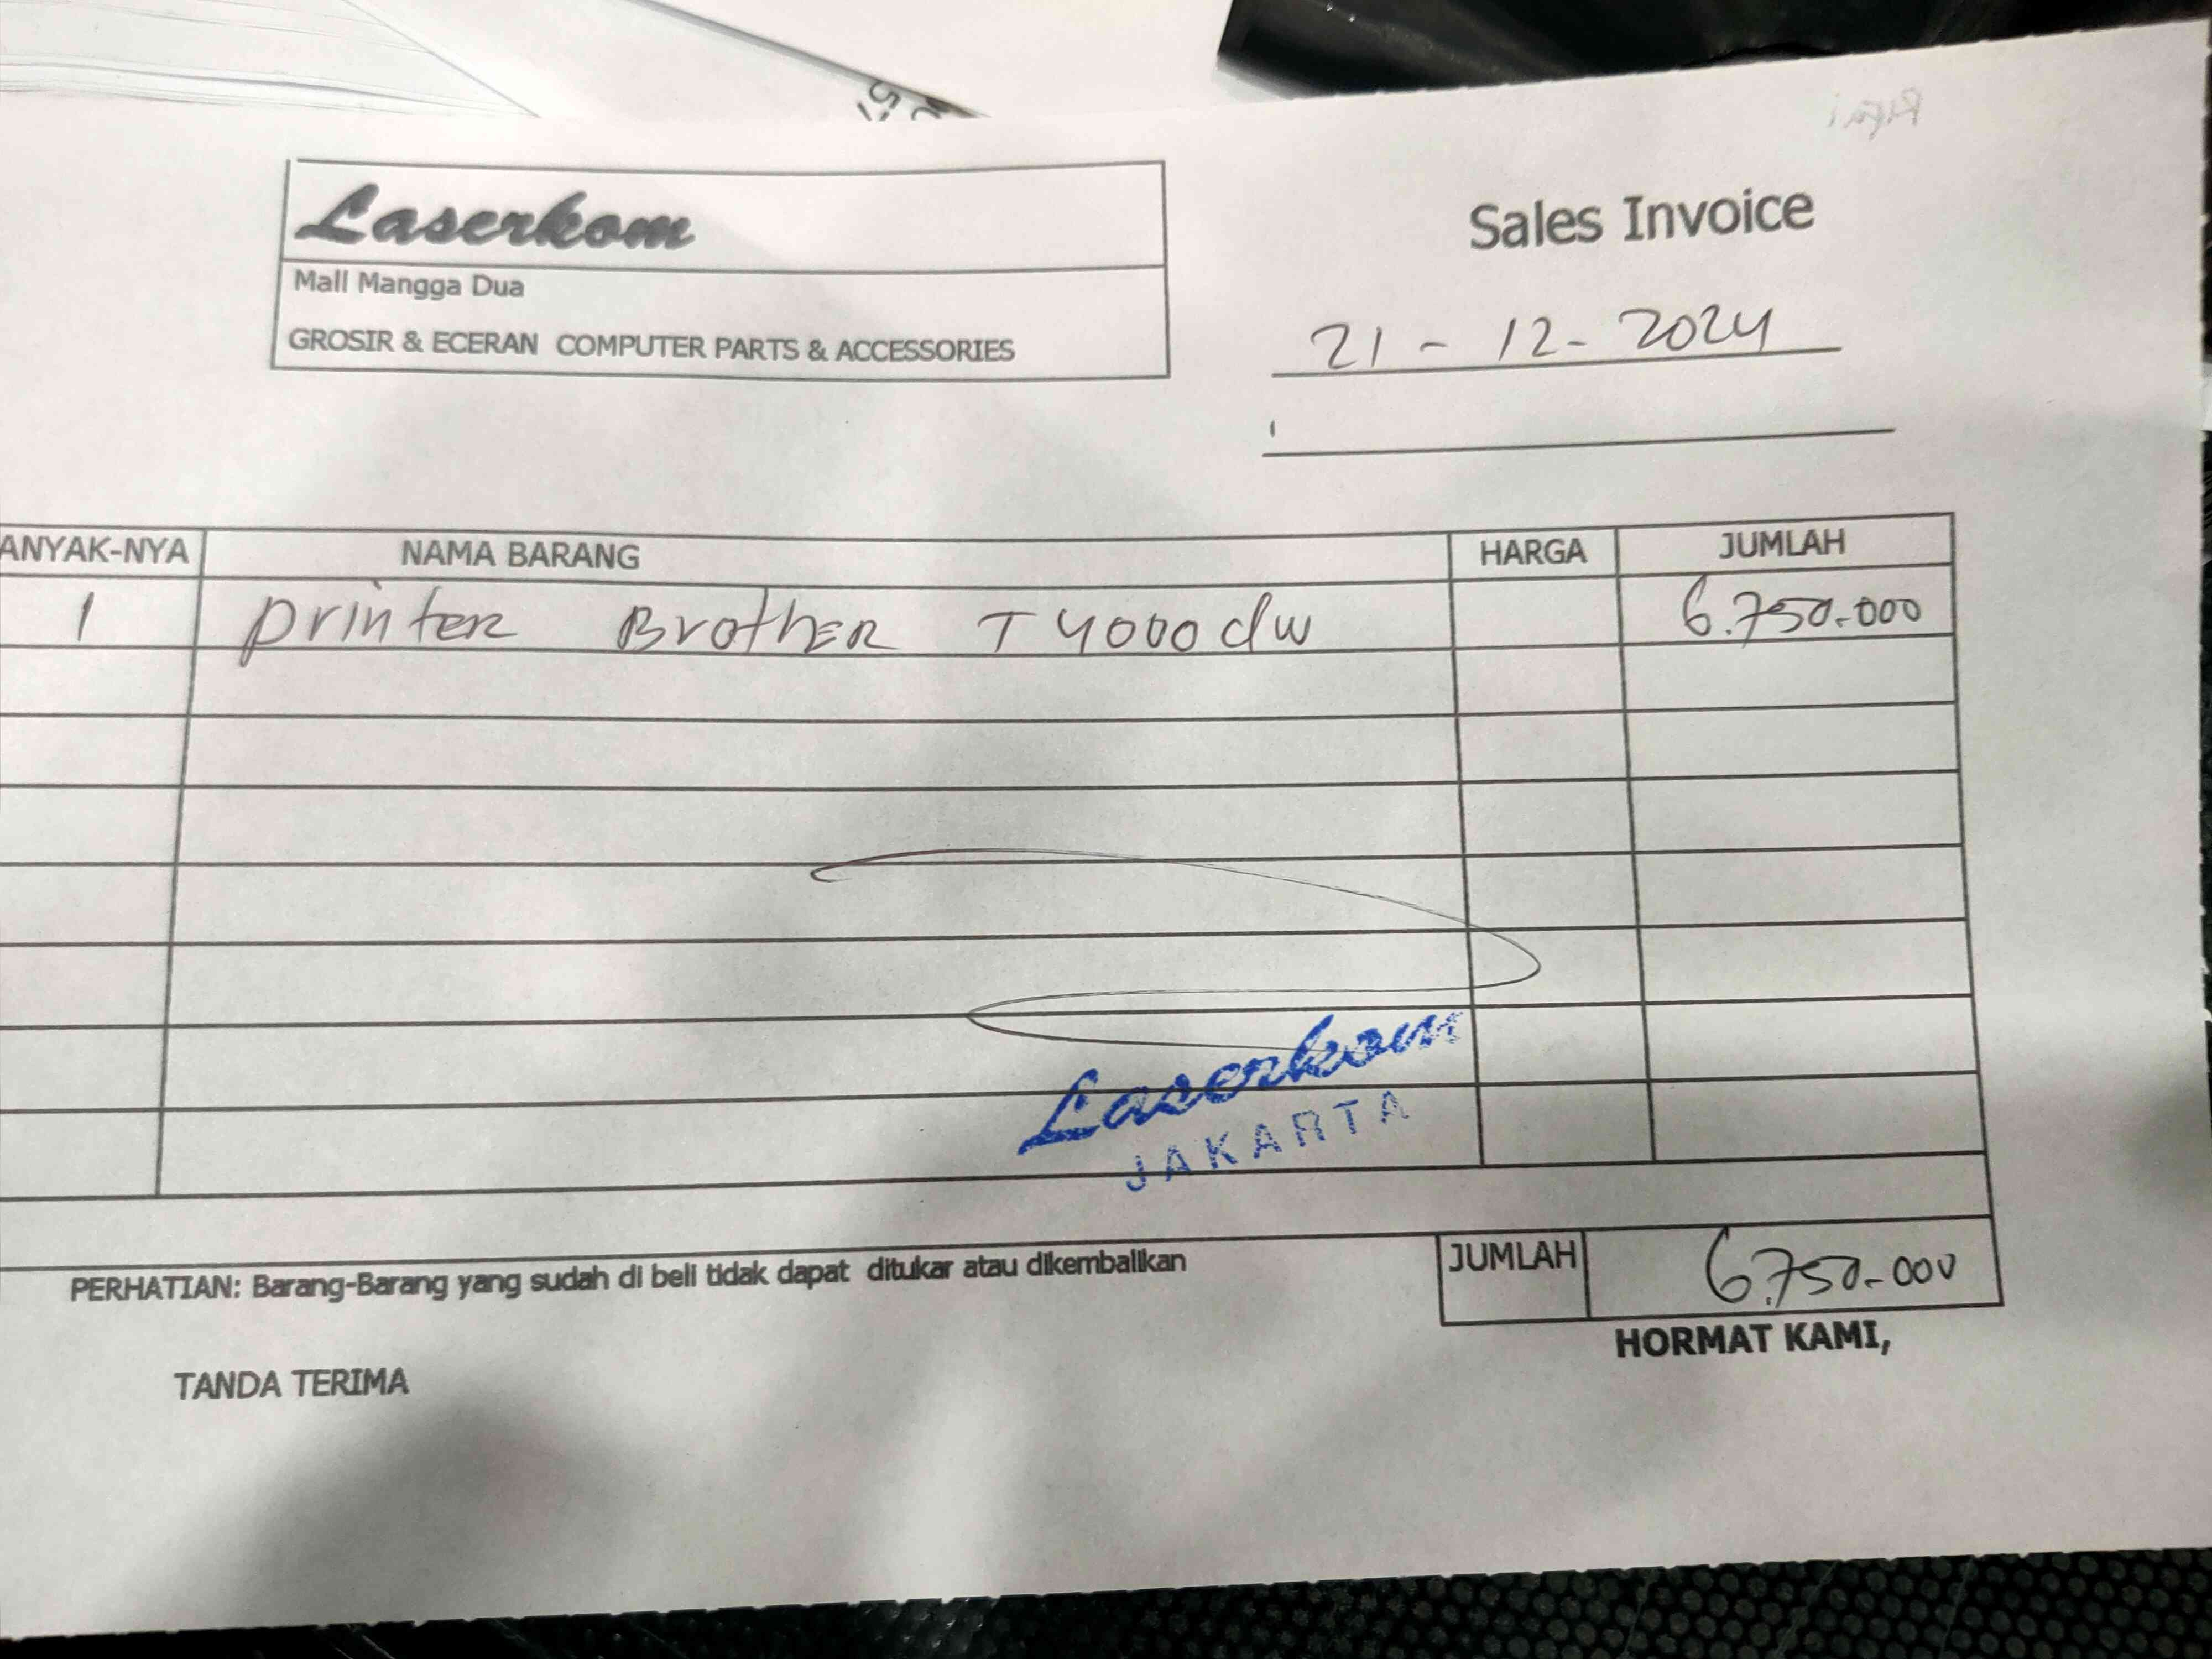 Laserkom
Mall Mangga Dua
GROSIR & ECERAN COMPUTER PARTS & ACCESSORIES
Sales Invoice
21 - 12 - 2024
ANYAK-NYA NAMA BARANG HARGA JUMLAH
1 printer Brother T4000dw 6.750.000
Laserkom
JAKARTA
PERHATIAN: Barang-Barang yang sudah di beli tidak dapat ditukar atau dikembalikan
JUMLAH 6.750.000
HORMAT KAMI,
TANDA TERIMA